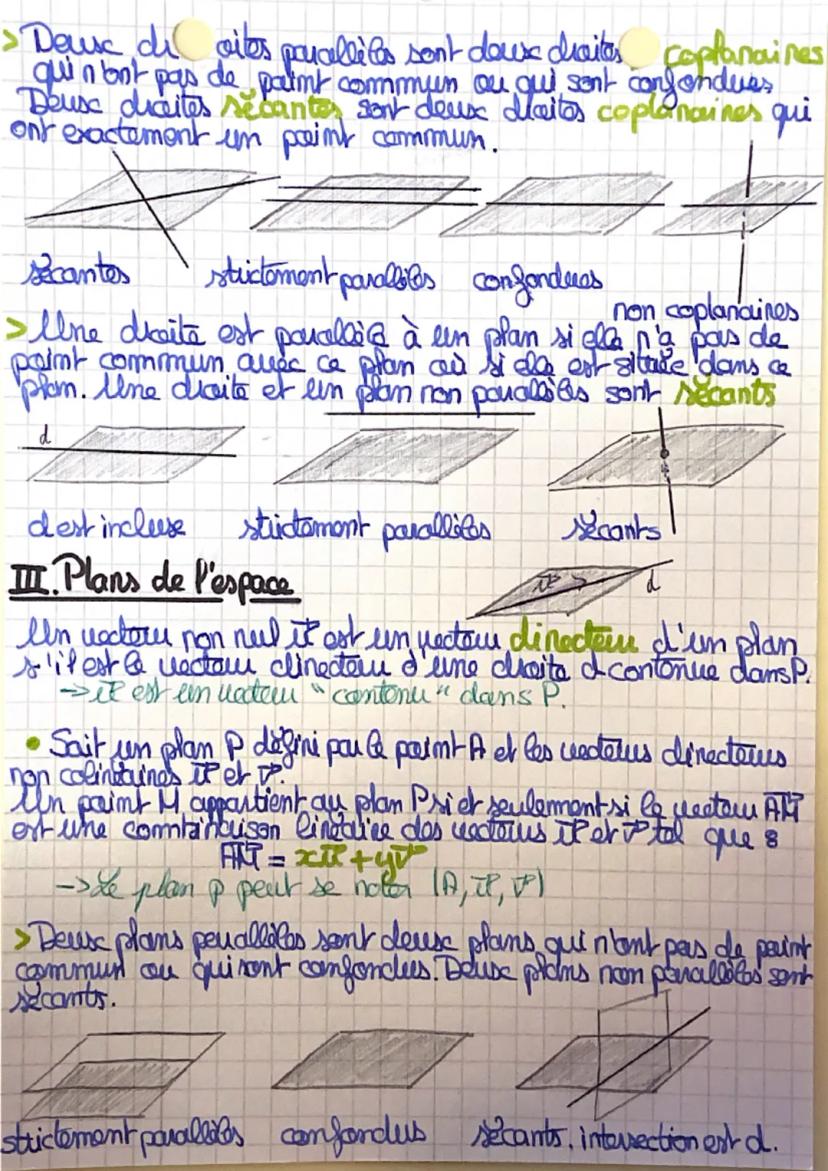 > Deux droites parallèles sont deux droites coplanaires
qui n'ont pas de point commun ou qui sont confondues
Deux droites sécantes sont deux droites coplanaires qui
ont exactement un point commun.
sécantes strictement parallèles confondues
non coplanaires
> Une droite est parallèle à un plan si elle n'a pas de
point commun avec ce plan où si elle est située dans ce
plan. Une droite et un plan non parallèles sont sécants
d
d est incluse strictement parallèles sécants
III. Plans de l'espace
u⃗ d
Un vecteur non nul u⃗ est un vecteur directeur d'un plan
s'il est le vecteur directeur d'une droite d contenue dans P.
→ u⃗ est un vecteur "contenu" dans P.
• Soit un plan P défini par le point A et les vecteurs directeurs
non colinéaires u⃗ et v⃗.
Un point M appartient au plan P si et seulement si le vecteur AM⃗
est une combinaison linéaire des vecteurs u⃗ et v⃗ tel que :
AM⃗ = xu⃗ + yv⃗
→ Le plan p peut se noter (A, u⃗, v⃗)
> Deux plans parallèles sont deux plans qui n'ont pas de point
commun ou qui sont confondus. Deux plans non parallèles sont
sécants.
strictement parallèles confondus sécants. intersection est d.